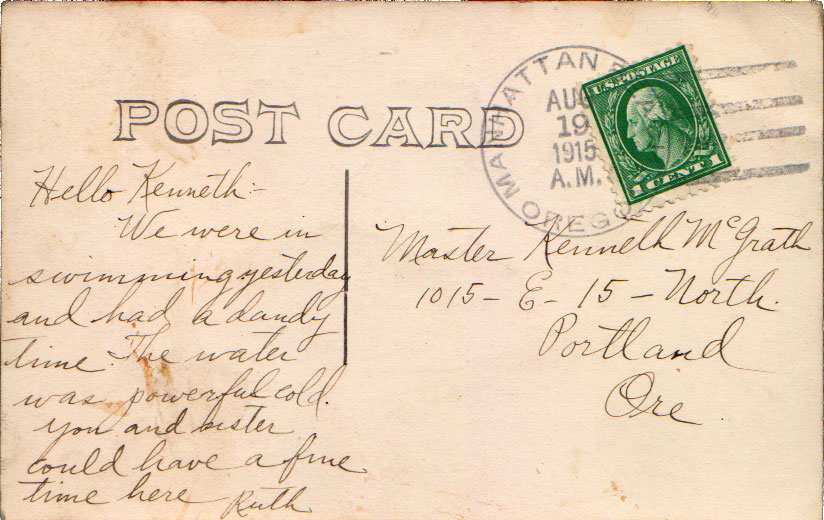 POST CARD
MANHATTAN
AUG
19
1915
A.M.
OREGO
U.S. POSTAGE
1 CENT 1
Hello Kenneth:-
We were in
swimming yesterday
and had a dandy
time. The water
was powerful cold.
You and sister
could have a fine
time here Ruth
Master Kenneth McGrath
1015 - E - 15 - North.
Portland
Ore